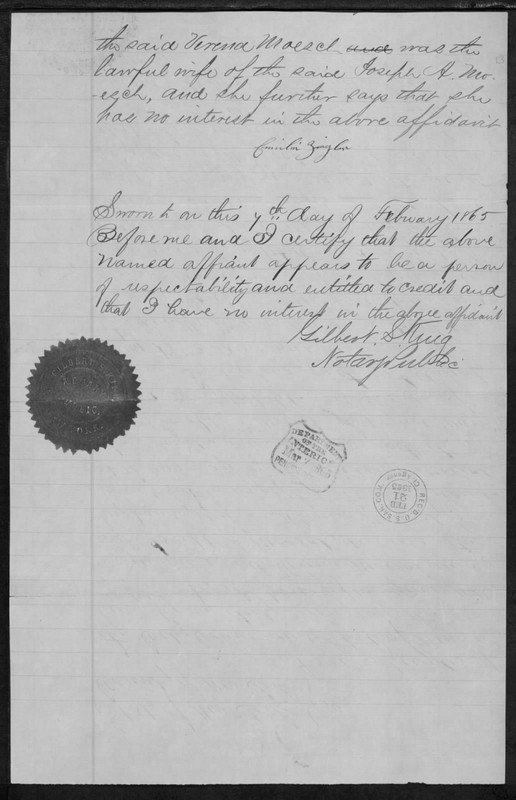 the said Verena Moesch and was the
lawful wife of the said Joseph A. Mo-
-esch, and she further says that she
has no interest in the above affidavit
Sworn to on this 7th day of February 1865
Before me and I certify that the above
named affiant appears to be a person
of respectability and entitled to credit and
that I have no interest in the above affidavit
Gilbert S.
Notary Public
DEPARTMENT
OF THE
INTERIOR
REC'D U.S. SAN. COM.
FEB
21
1865